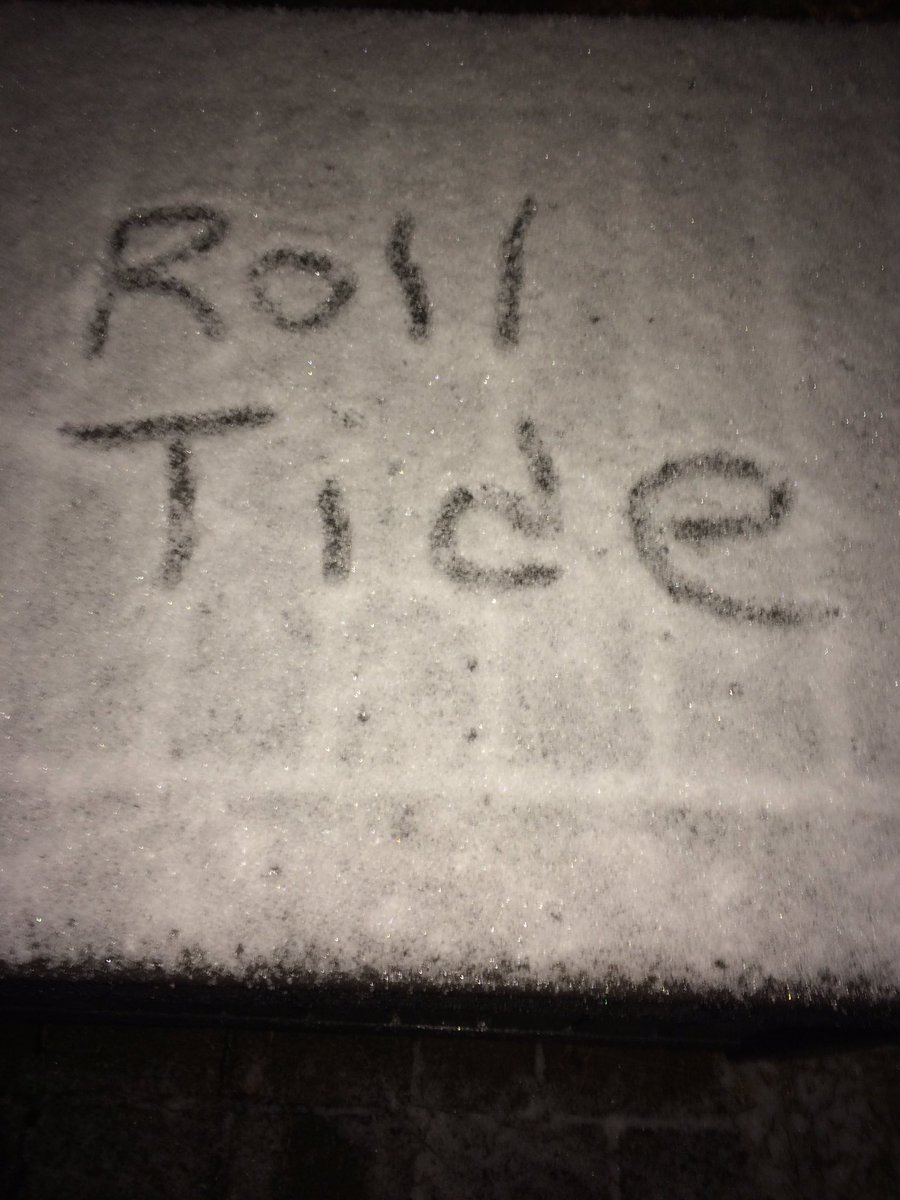 Roll
Tide